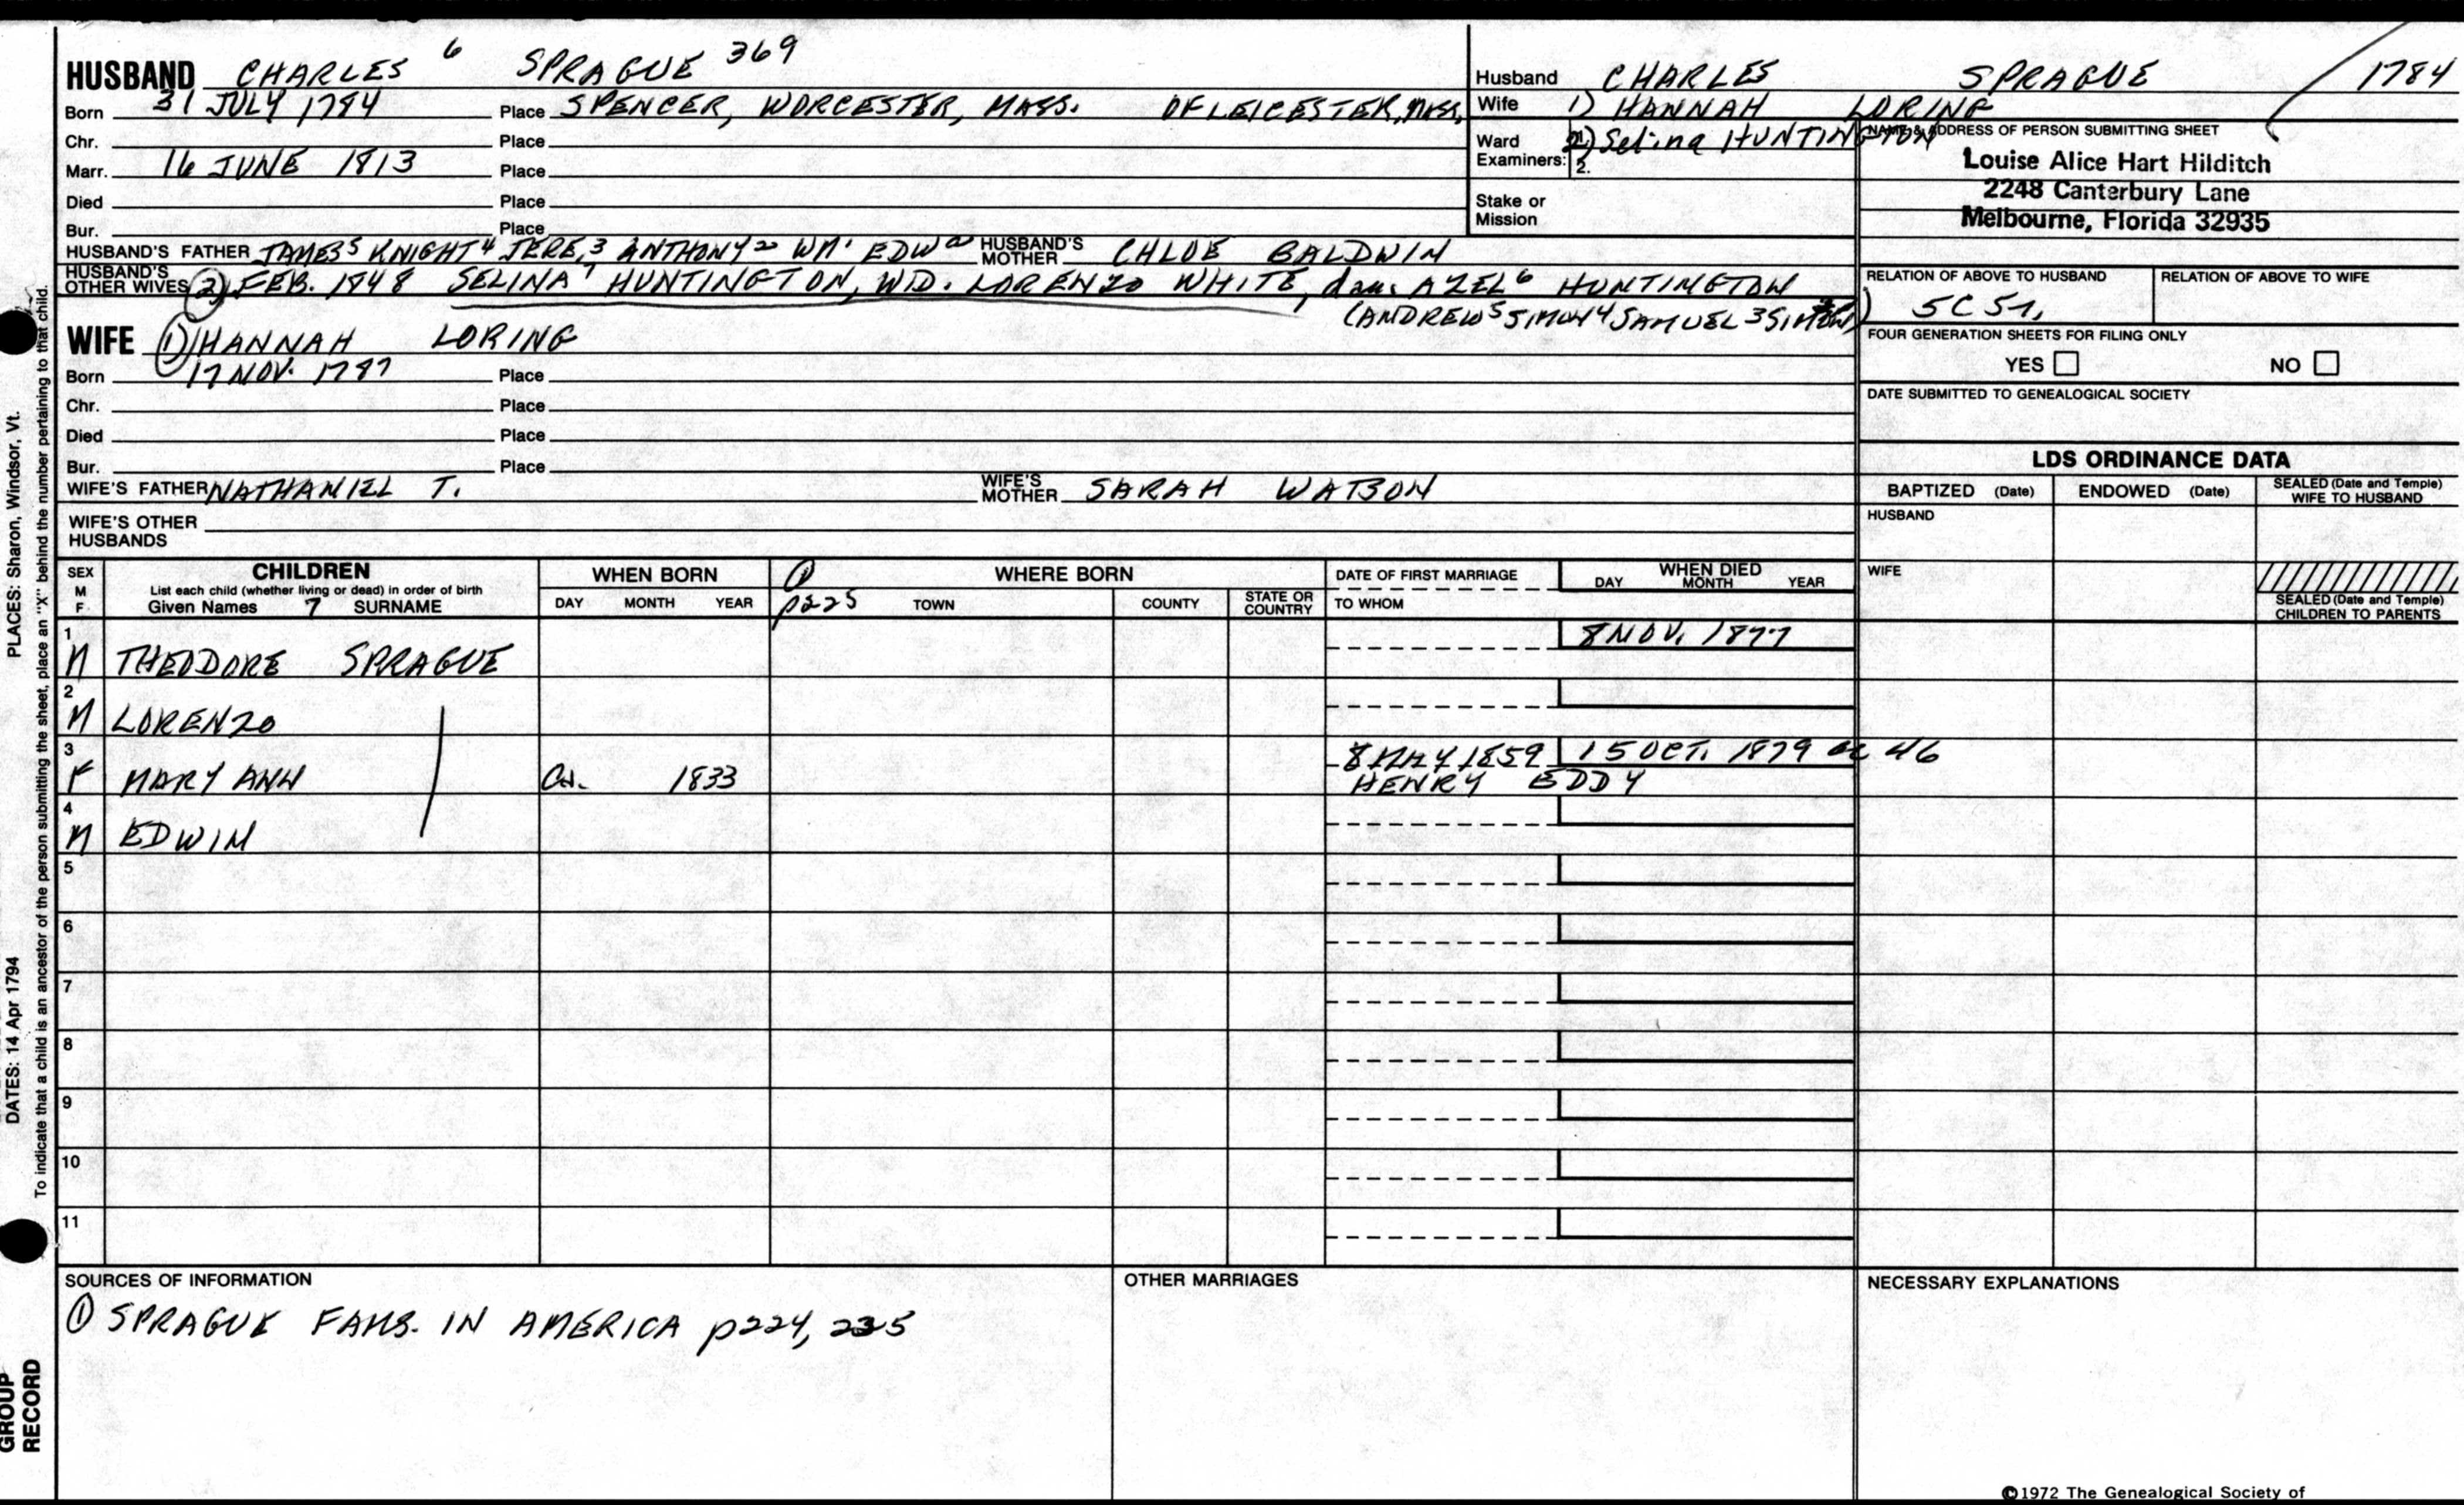 HUSBAND CHARLES 6 SPRAGUE 369
Born 31 JULY 1784 Place SPENCER, WORCESTER, MASS. OF LEICESTER, MASS,
Chr. Place
Marr. 16 JUNE 1813 Place
Died Place
Bur. Place
HUSBAND'S FATHER JAMES 5 KNIGHT 4 JERE, 3 ANTHONY 2 WM 1 EDW a HUSBAND'S MOTHER CHLOE BALDWIN
HUSBAND'S OTHER WIVES (2) FEB. 1848 SELINA 7 HUNTINGTON, WD. LORENZO WHITE, dau. AZEL 6 HUNTINGTON
(ANDREW 5 SIMON 4 SAMUEL 3 SIMON)
WIFE (1) HANNAH LORING
Born 17 NOV. 1787 Place
Chr. Place
Died Place
Bur. Place
WIFE'S FATHER NATHANIEL T. WIFE'S MOTHER SARAH WATSON
WIFE'S OTHER HUSBANDS
Husband CHARLES SPRAGUE 1784
Wife 1) HANNAH LORING
Ward Examiners: 2) Selina HUNTINGTON
2.
Stake or Mission
NAME & ADDRESS OF PERSON SUBMITTING SHEET
Louise Alice Hart Hilditch
2248 Canterbury Lane
Melbourne, Florida 32935
RELATION OF ABOVE TO HUSBAND RELATION OF ABOVE TO WIFE
5C 5r,
FOUR GENERATION SHEETS FOR FILING ONLY
YES NO
DATE SUBMITTED TO GENEALOGICAL SOCIETY
LDS ORDINANCE DATA
BAPTIZED (Date) ENDOWED (Date) SEALED (Date and Temple) WIFE TO HUSBAND
HUSBAND
WIFE
SEALED (Date and Temple) CHILDREN TO PARENTS
SEX M F
CHILDREN
List each child (whether living or dead) in order of birth
Given Names 7 SURNAME
WHEN BORN
DAY MONTH YEAR
① WHERE BORN
p225 TOWN COUNTY STATE OR COUNTRY
DATE OF FIRST MARRIAGE
TO WHOM
WHEN DIED
DAY MONTH YEAR
1 M THEODORE SPRAGUE 8 NOV. 1877
2 M LORENZO
3 F MARY ANN Ca. 1833 8 MAY 1859 15 OCT. 1879 ae 46
HENRY EDDY
4 M EDWIN
5
6
7
8
9
10
11
SOURCES OF INFORMATION
① SPRAGUE FAMS. IN AMERICA p224, 225
OTHER MARRIAGES
NECESSARY EXPLANATIONS
©1972 The Genealogical Society of
PLACES: Sharon, Windsor, Vt.
DATES: 14 Apr 1794
To indicate that a child is an ancestor of the person submitting the sheet, place an "X" behind the number pertaining to that child.
GROUP
RECORD